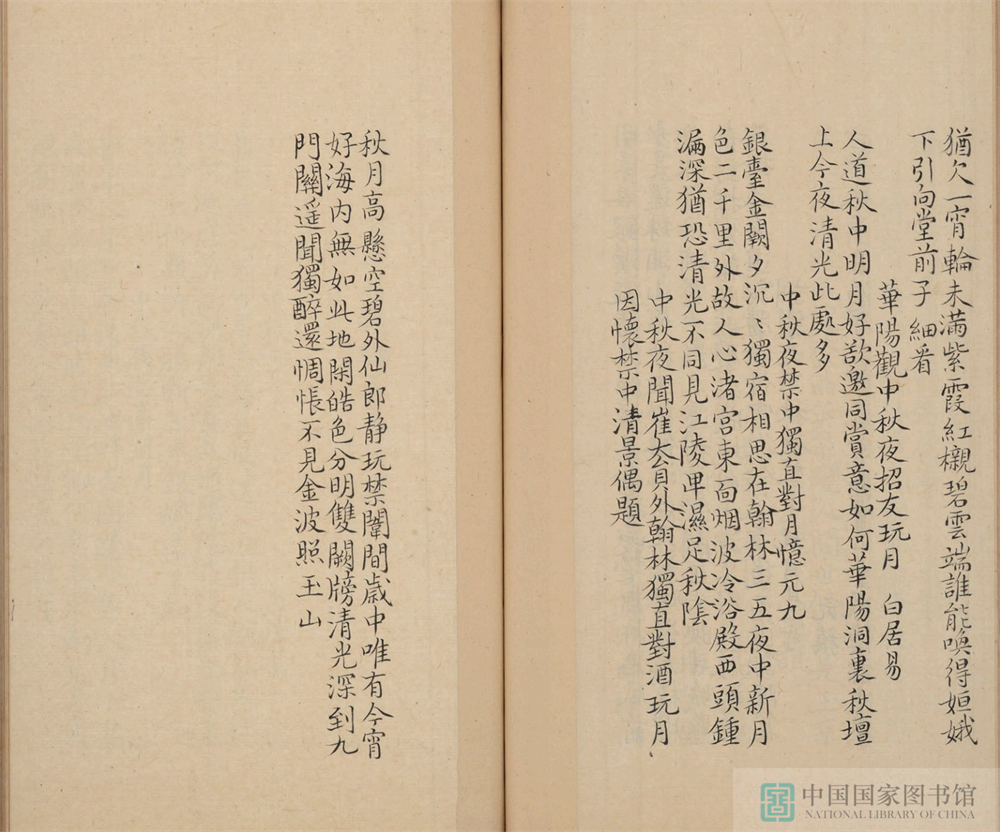 猶欠一宵輪未滿紫霞紅襯碧雲端誰能喚得姮娥
下引向堂前子細看
華陽觀中秋夜招友玩月　白居易
人道秋中明月好欲邀同賞意如何華陽洞裏秋壇
上今夜清光此處多
中秋夜禁中獨直對月憶元九
銀臺金闕夕沉〻獨宿相思在翰林三五夜中新月
色二千里外故人心渚宮東面烟波冷浴殿西頭鍾
漏深猶恐清光不同見江陵卑濕足秋陰
中秋夜聞崔夳員外翰林獨直對酒玩月
因懷禁中清景偶題
秋月高懸空碧外仙郎静玩禁闈間歲中唯有今宵
好海內無如此地閑皓色分明雙闕牓清光深到九
門關遥聞獨醉還惆悵不見金波照玉山
中国国家图书馆
NATIONAL LIBRARY OF CHINA